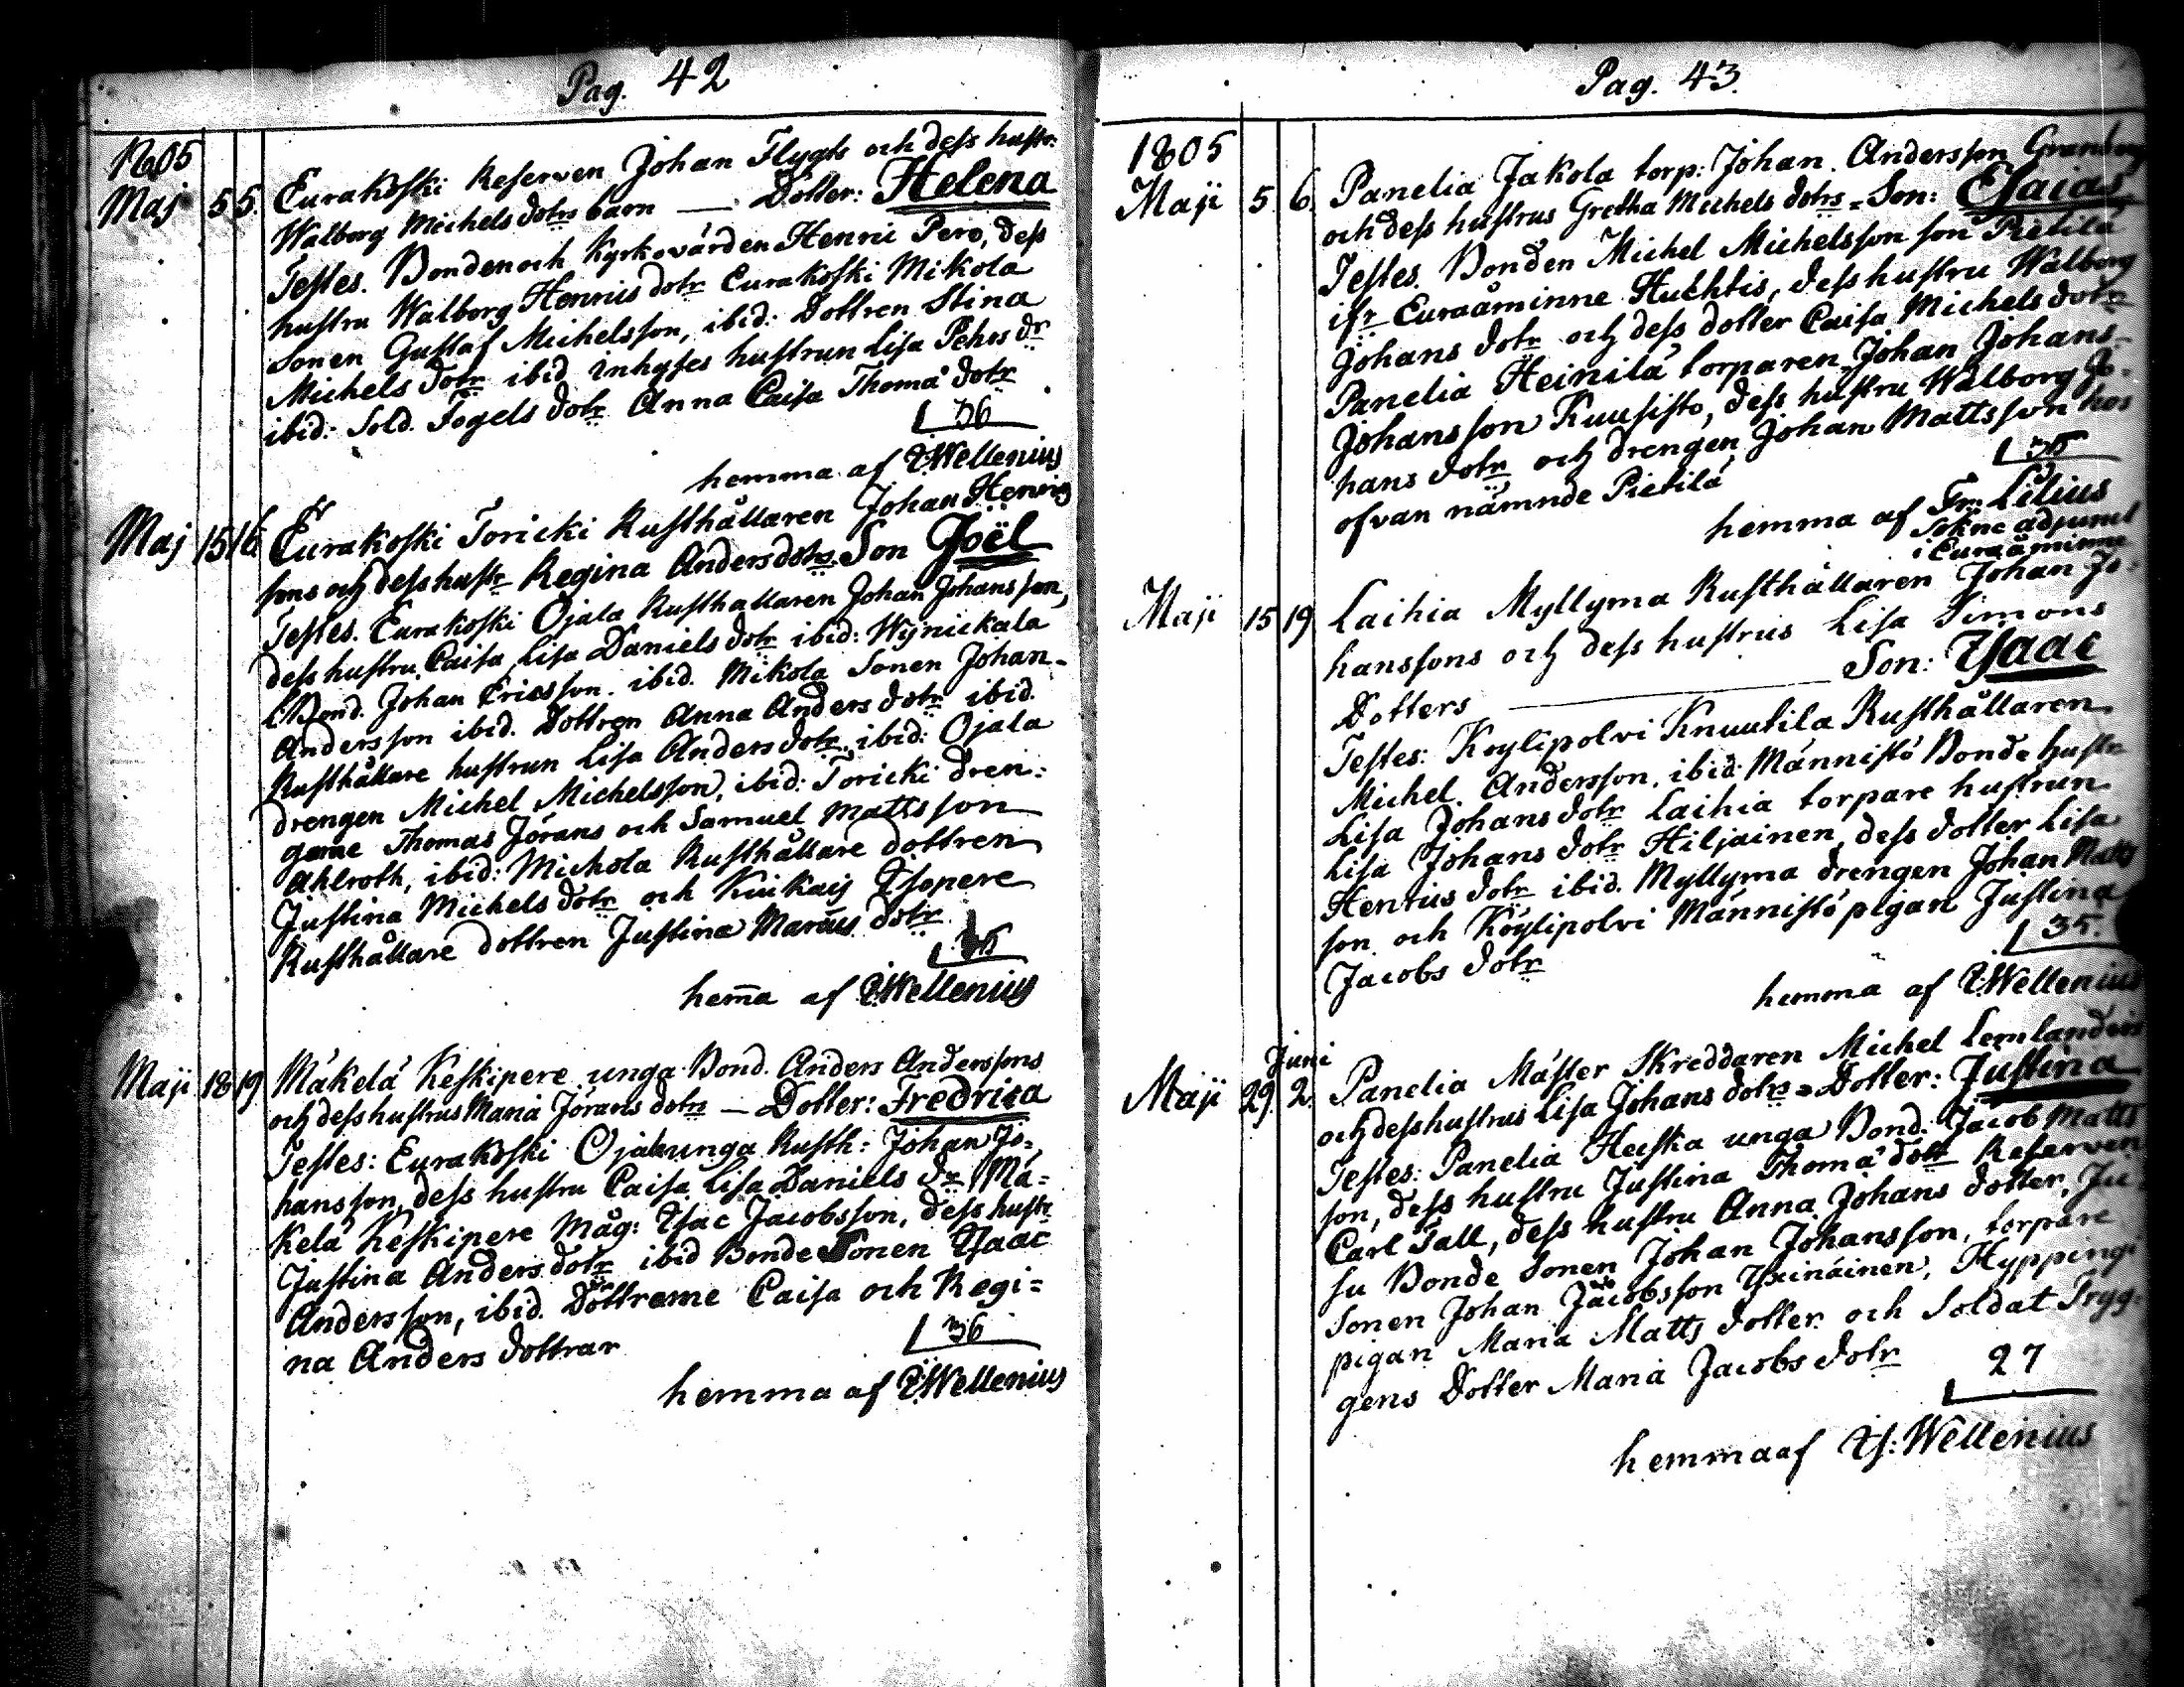 Pag. 42
1805
Maj 5 5. Eurakoski Reserven Johan Flygts och dess hustr:
Walborg Michels dotrs barn — Dotter: Helena
Testes. Bonden och Kyrkovärden Henric Pero, dess
hustru Walborg Henrics dotr Eurakoski Mikola
Sonen Gustaf Michelsson, ibid: Dottren Stina
Michels dotr ibid Inhyses hustrun Lisa Pehrs dr
ibid: Sold. Fogels dotr Anna Caisa Thomä dotr
36
hemma af I:Wellenius
Maj 15 16 Eurakoski Toricki Rusthållaren Johan Henrics
sons och dess hustr Regina Andersdotrs Son Joël
Testes. Eurakoski Ojala Rusthållaren Johan Johansson,
dess hustru Caisa Lisa Daniels dotr ibid: Wÿnickala
Bond. Johan Ericsson. ibid. Mikola Sonen Johan
Andersson ibid. Dottren Anna Anders dotr ibid.
Rusthållare hustrun Lisa Anders dotr ibid: Ojala
drengen Michel Michelsson, ibid: Toricki dren:
garne Thomas Jörans och Samuel Mattsson
Ahlroth, ibid: Michola Rusthållare dottren
Justina Michels dotr och Kiukais Isopere
Rusthållare dottren Justina Marcus dotr
36
hem̄a af I:Wellenius
Maji 18 19 Mäkelä Keskipere unga Bond. Anders Anderssons
och dess hustrus Maria Jörans dotrs — Dotter: Fredrica
Testes: Eurakoski Ojala unga Rusth: Johan Jo-
hansson, dess hustru Caisa Lisa Daniels dr Mä-
kelä Keskipere Måg: Isac Jacobsson, dess hustr
Justina Anders dotr ibid Bonde Sonen Isaac
Andersson, ibid. Döttrarne Caisa och Regi=
na Anders dottrar
36
hemma af I:Wellenius
Pag. 43.
1805
Maji 5 6. Panelia Jakola torp: Johan Andersson Granberg
och dess hustrus Gretha Michels dotrs = Son: Esaias
Testes. Bonden Michel Michelsson son Pietilä
ifr Euraåminne Huchtis, dess hustru Walborg
Johans dotr och dess dotter Caisa Michels dotr
Panelia Heinilä torparen Johan Johans-
Johansson Kuusisto, dess hustru Walborg Jo-
hans dotr och drengen Johan Mattsson hos
ofvan nämnde Pietilä
36
hemma af Fr: Lilius
Sokne adjunct
i Euraåminne
Maji 15 19 Laihia Myllyma Rusthållaren Johan Jo-
hanssons och dess hustrus Lisa Simons
Dotters — Son: Isaac
Testes: Koylipolvi Knuutila Rusthållaren
Michel Andersson, ibid: Männistö Bonde hustr
Lisa Johans dotr Laihia torpare hustrun
Lisa Johans dotr Hiljainen, dess dotter Lisa
Henrics dotr ibid. Myllyma drengen Johan Matts
son och Köylipolvi Männistö pigan Justina
Jacobs dotr
35.
hemma af I:Wellenius
Juni
Maji 29. 2. Panelia Mäster Skreddaren Michel Lemlanders
och dess hustrus Lisa Johans dotrs = Dotter: Justina
Testes: Panelia Heiska unga Bond: Jacob Matts
son, dess hustru Justina Thomä dotr Reserven
Carl Tall, dess hustru Anna Johans dotter, Ju
su Bonde Sonen Johan Johansson, torpare
Sonen Johan Jacobsson Yxinäinen, Hyppingi
pigan Maria Matts dotter och Soldat Tryg-
gens Dotter Maria Jacobs dotr
27
hemma af Is: Wellenius